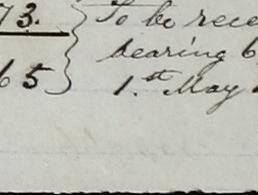 73. } To be rece
bearing 6
65 } 1.st May